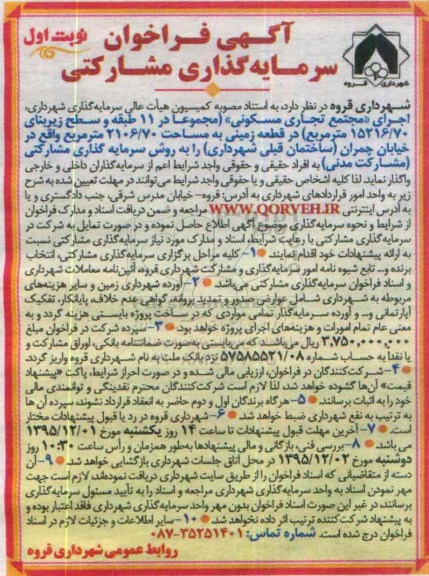 آگهی فراخوان
سرمایه‌گذاری مشارکتی
نوبت اول
شهرداری قروه
شهرداری قروه در نظر دارد، به استناد مصوبه کمیسیون هیأت عالی سرمایه‌گذاری شهرداری،
اجرای «مجتمع تجاری مسکونی» (مجموعا در ۱۱ طبقه و سطح زیربنای
۱۵۲۱۶/۷۰ مترمربع) در قطعه زمینی به مساحت ۲۱۰۶/۷۰ مترمربع واقع در
خیابان چمران (ساختمان قبلی شهرداری) را به روش سرمایه گذاری مشارکتی
(مشارکت مدنی) به افراد حقیقی و حقوقی واجد شرایط اعم از سرمایه‌گذاران داخلی و خارجی
واگذار نماید. لذا کلیه اشخاص حقیقی و یا حقوقی واجد شرایط می‌توانند در مهلت تعیین شده به شرح
زیر به واحد امور قراردادهای شهرداری به آدرس: قروه- خیابان مدرس شرقی، جنب دادگستری و یا
به آدرس اینترنتی WWW.QORVEH.IR مراجعه و ضمن دریافت اسناد و مدارک فراخوان
از شرایط و نحوه سرمایه‌گذاری موضوع آگهی اطلاع حاصل نموده و در صورت تمایل به شرکت در
سرمایه‌گذاری مشارکتی با رعایت شرایط، اسناد و مدارک مورد نیاز سرمایه‌گذاری مشارکتی نسبت
به ارائه پیشنهادات خود اقدام نمایند. ۱-کلیه مراحل برگزاری سرمایه‌گذاری مشارکتی، انتخاب
برنده و... تابع شیوه نامه امور سرمایه‌گذاری و مشارکت شهرداری قروه، آئین‌نامه معاملات شهرداری
و اسناد فراخوان سرمایه‌گذاری مشارکتی می‌باشد. ۲-آورده شهرداری زمین و سایر هزینه‌های
مربوطه به شهرداری شامل عوارض صدور و تمدید پروانه، گواهی عدم خلاف، پایانکار، تفکیک
آپارتمانی و... و آورده سرمایه‌گذار تمامی مواردی که در ساخت پروژه بایستی هزینه گردد و به
معنی عام تمام امورات و هزینه‌های اجرای پروژه خواهد بود. ۳-سپرده شرکت در فراخوان مبلغ
۲,۷۵۰,۰۰۰,۰۰۰ ریال می‌باشد که می‌بایستی به‌صورت ضمانتنامه بانکی، اوراق مشارکت و
یا نقدا به حساب شماره ۵۷۵۸۵۵۲۱/۰۸ نزد بانک ملت به نام شهرداری قروه واریز گردد.
۴-شرکت‌کنندگان در فراخوان، ارزیابی مالی شده و در صورت احراز شرایط، پاکت «پیشنهاد
قیمت» آن‌ها گشوده خواهد شد، لذا لازم است شرکت‌کنندگان محترم نقدینگی و توانمندی مالی
خود را به اثبات برسانند. ۵-هرگاه برندگان اول و دوم حاضر به انعقاد قرارداد نشوند، سپرده آن ها
به ترتیب به نفع شهرداری ضبط خواهد شد. ۶-شهرداری قروه در رد یا قبول پیشنهادات مختار
است. ۷-آخرین مهلت قبول پیشنهادات تا ساعت ۱۴ روز یکشنبه مورخ ۱۳۹۵/۱۲/۰۱
می باشد. ۸-بررسی فنی، بازگانی و مالی پیشنهادها به‌طور همزمان و رأس ساعت ۱۰:۳۰ روز
دوشنبه مورخ ۱۳۹۵/۱۲/۰۲ در محل اتاق جلسات شهرداری بازگشایی خواهد شد. ۹-آن
دسته از متقاضیانی که اسناد فراخوان را از طریق سایت شهرداری دریافت نموده‌اند، لازم است جهت
مهر نمودن اسناد به واحد سرمایه‌گذاری شهرداری مراجعه و اسناد را به تأیید مسئول سرمایه‌گذاری
برسانند، در غیر این صورت اسناد فراخوان بدون مهر واحد سرمایه‌گذاری شهرداری فاقد اعتبار بوده و
به پیشنهاد شرکت کننده ترتیب اثر داده نخواهد شد. ۱۰-سایر اطلاعات و جزئیات لازم در اسناد
فراخوان درج شده است. شماره تماس: ۳۵۲۵۱۴۰۱-۰۸۷
روابط عمومی شهرداری قروه